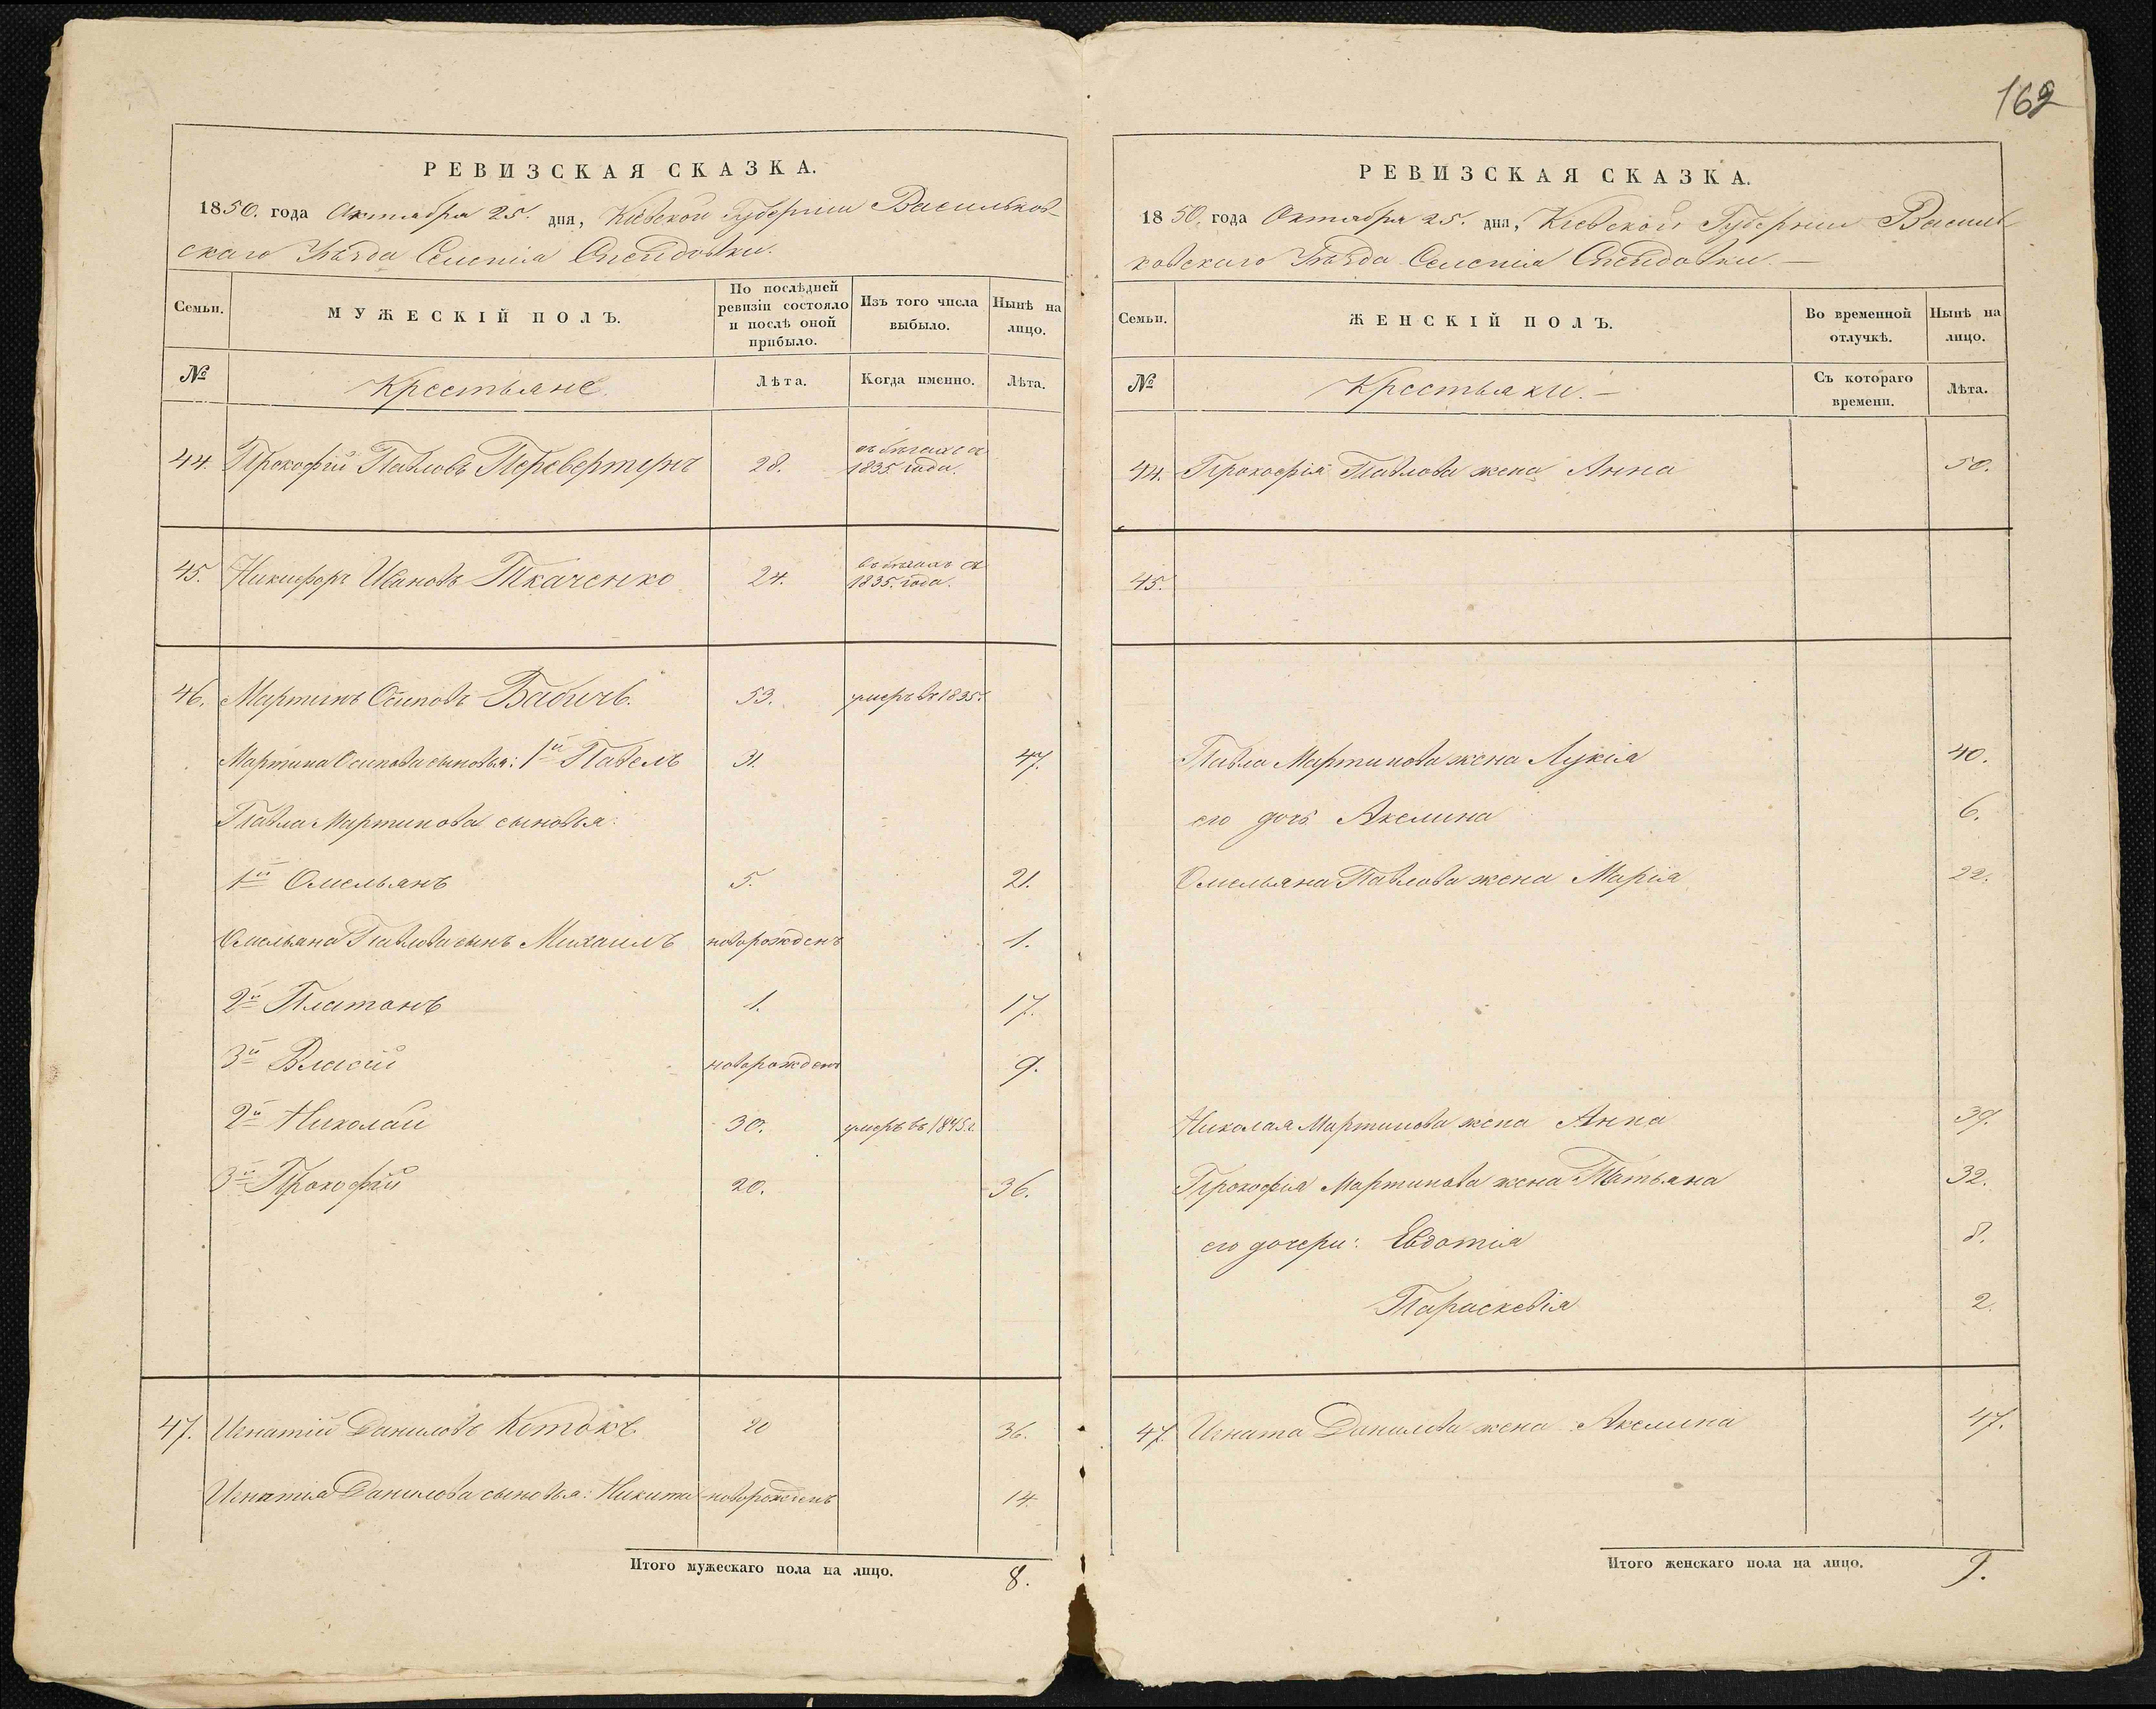 162
РЕВИЗСКАЯ СКАЗКА.
1850. года Октября 25. дня, Кіевской Губерніи Васильков-
скаго Уѣзда Селенія
Семьи.
МУЖЕСКІЙ ПОЛЪ.
По послѣдней ревизіи состояло и послѣ оной прибыло.
Изъ того числа выбыло.
Нынѣ на лицо.
№
Крестьяне.
Лѣта.
Когда именно.
Лѣта.
44. Прокофій Павловъ Перевертунъ 28. въ бѣгахъ съ
1835 года.
45. Никифоръ Ивановъ Ткаченко 24. въ бѣгахъ съ
1835. года.
46. Мартинъ Осиповъ Бабичь. 53. умеръ въ 1835 г.
Мартина Осипова сыновья: 1й Павелъ 31. 47.
Павла Мартинова сыновья:
1й Омельянъ 5. 21.
Омельяна Павлова сынъ Михаилъ новорожденъ 1.
2й Платонъ 1. 17.
3й Власій новорожденъ 9.
2й Николай 30. умеръ въ 1845 г.
3й Прокофій 20. 36.
47. Игнатій Даниловъ Котокъ 20 36.
Игнатія Данилова сыновья: Никита новорожденъ 14.
Итого мужескаго пола на лицо. 8.
РЕВИЗСКАЯ СКАЗКА.
1850. года Октября 25. дня, Кіевской Губерніи Василь-
ковскаго Уѣзда Селенія
Семьи.
ЖЕНСКІЙ ПОЛЪ.
Во временной отлучкѣ.
Нынѣ на лицо.
№
Крестьяки.
Съ котораго времени.
Лѣта.
44. Прокофія Павлова жена Анна 50.
45.
Павла Мартинова жена Лукія 40.
его дочь Акелина 6.
Омельяна Павлова жена Марія 22.
Николая Мартинова жена Анна 39.
Прокофія Мартинова жена Татьяна 32.
его дочери: Евдотія 8.
Параскевія 2.
47. Игната Данилова жена Акелина 47.
Итого женскаго пола на лицо. 9.